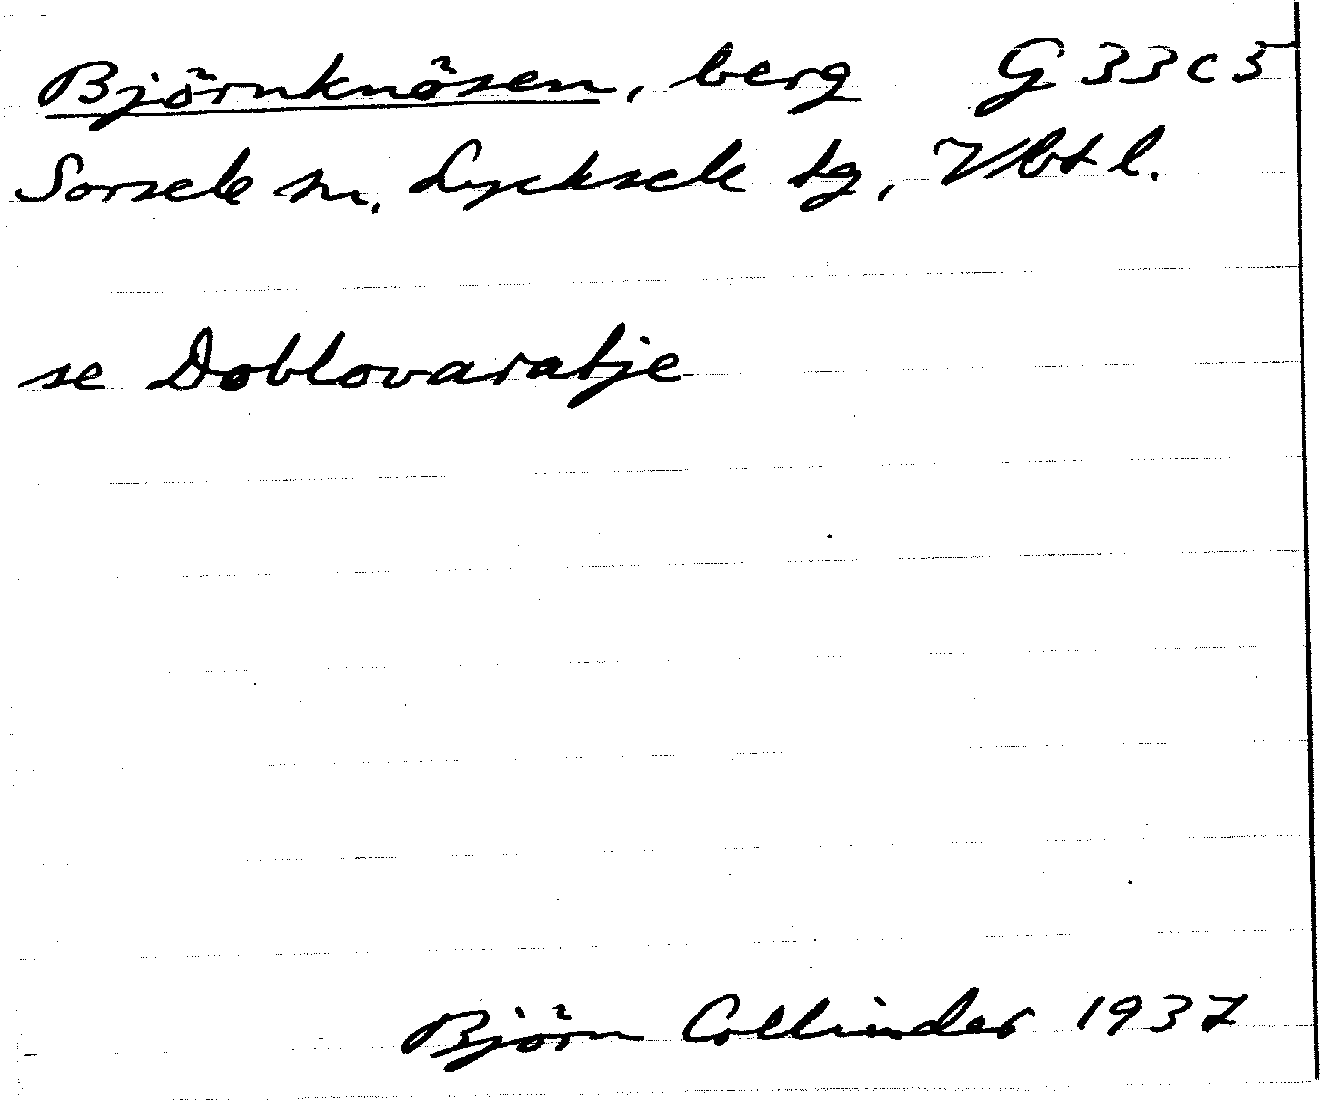 Björnknösen, berg G 33 c 5
Sorsele sn, Lycksele tg, Vbtl.
se Doblovaratje
Björn Collinder 1937